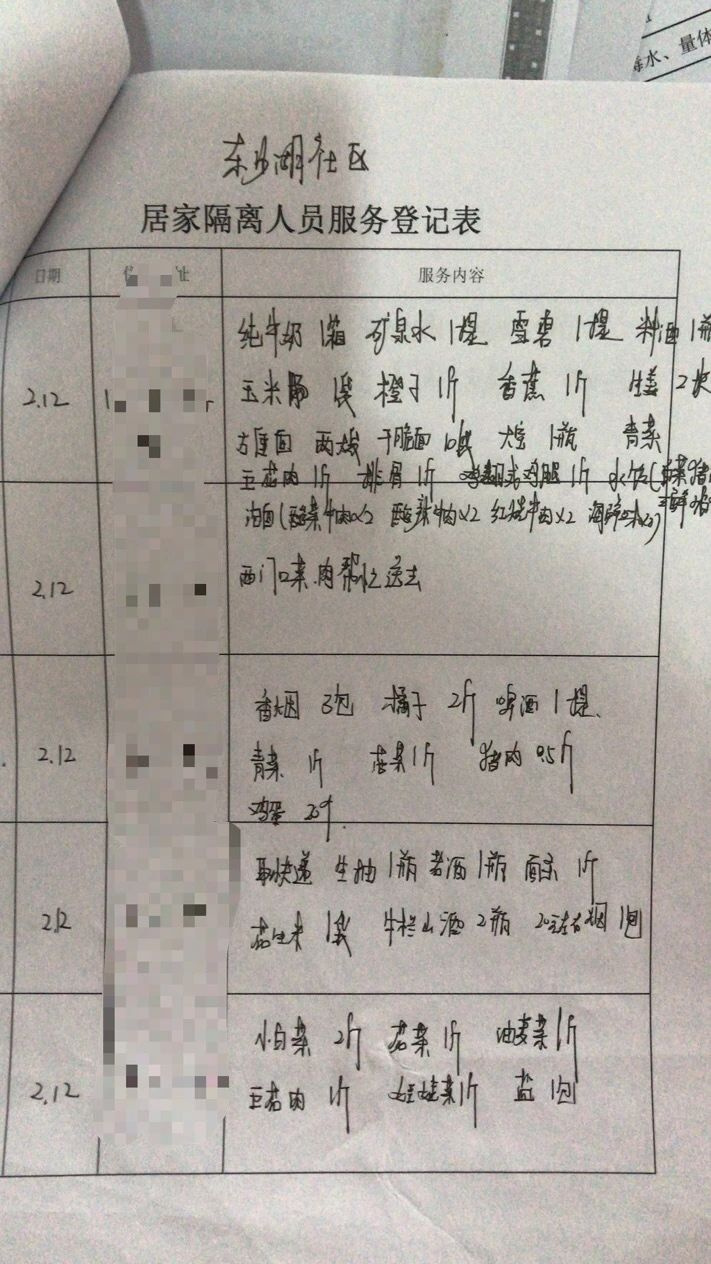 毒水、量体
东沙湖社区
居家隔离人员服务登记表
日期 住 址 服务内容
纯牛奶 1箱 矿泉水 1提 雪碧 1提 料酒 1瓶
2.12 玉米肠 1袋 橙子 1斤 香蕉 1斤 生姜 2块
方便面 两大袋 干脆面 10袋 1瓶 青菜
五花肉 1斤 排骨 1斤 鸡翅或鸡腿 1斤 水饺(
泡面(酸菜牛肉×2 酸菜牛肉×2 红烧牛肉×2 海鲜
2.12 西门口菜.肉 送去
香烟 3包 橘子 2斤 啤酒 1提.
2.12 青菜 1斤 花菜 1斤 猪肉 0.5斤
鸡蛋 20个.
取快递 生抽 1瓶 老酒 1瓶 1斤
2.12 花生米 1袋 牛栏山酒 2瓶 20元左右烟 1包
小白菜 2斤 花菜 1斤 油麦菜 1斤
2.12 五花肉 1斤 娃娃菜 1斤 盐 1包